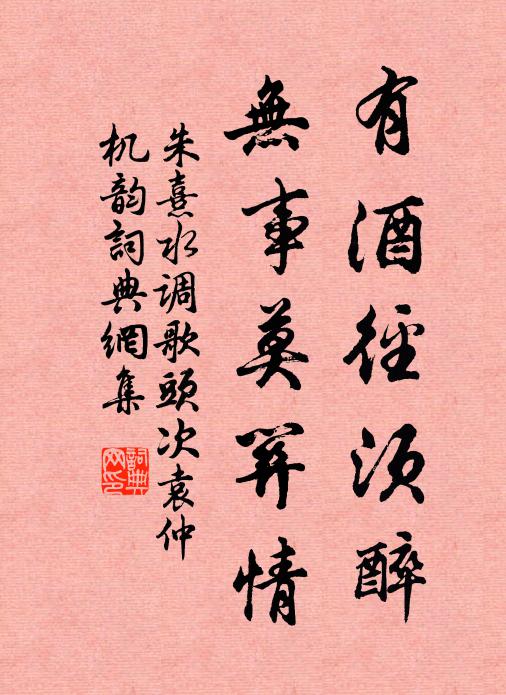 有酒徑須醉
無事莫關情
朱熹水调歌頭次袁仲
机韵詞典網集
詞典
网印